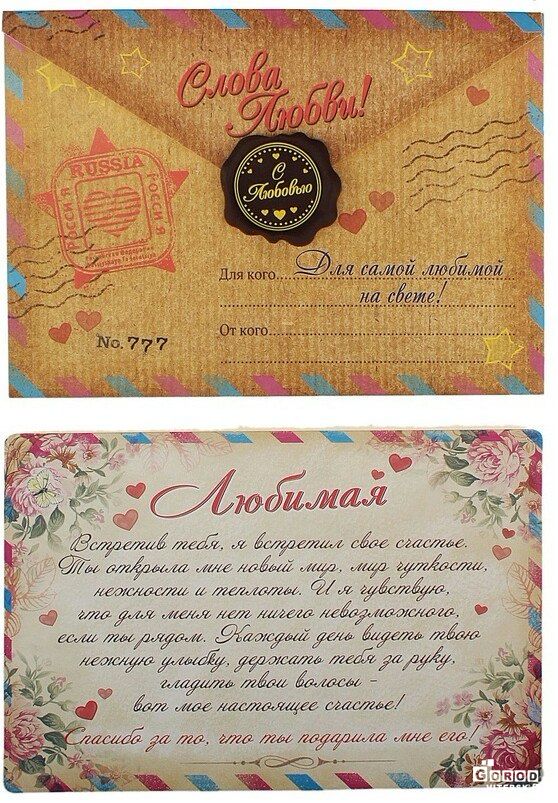 Слова
Любви!
С
Любовью
RUSSIA
РОССИЯ
РОССИЯ
Для кого Для самой любимой
на свете!
От кого
No. 777
Любимая
Встретив тебя, я встретил свое счастье.
Ты открыла мне новый мир, мир чуткости,
нежности и теплоты. И я чувствую,
что для меня нет ничего невозможного,
если ты рядом. Каждый день видеть твою
нежную улыбку, держать тебя за руку,
гладить твои волосы -
вот мое настоящее счастье!
Спасибо за то, что ты подарила мне его!
GOROD